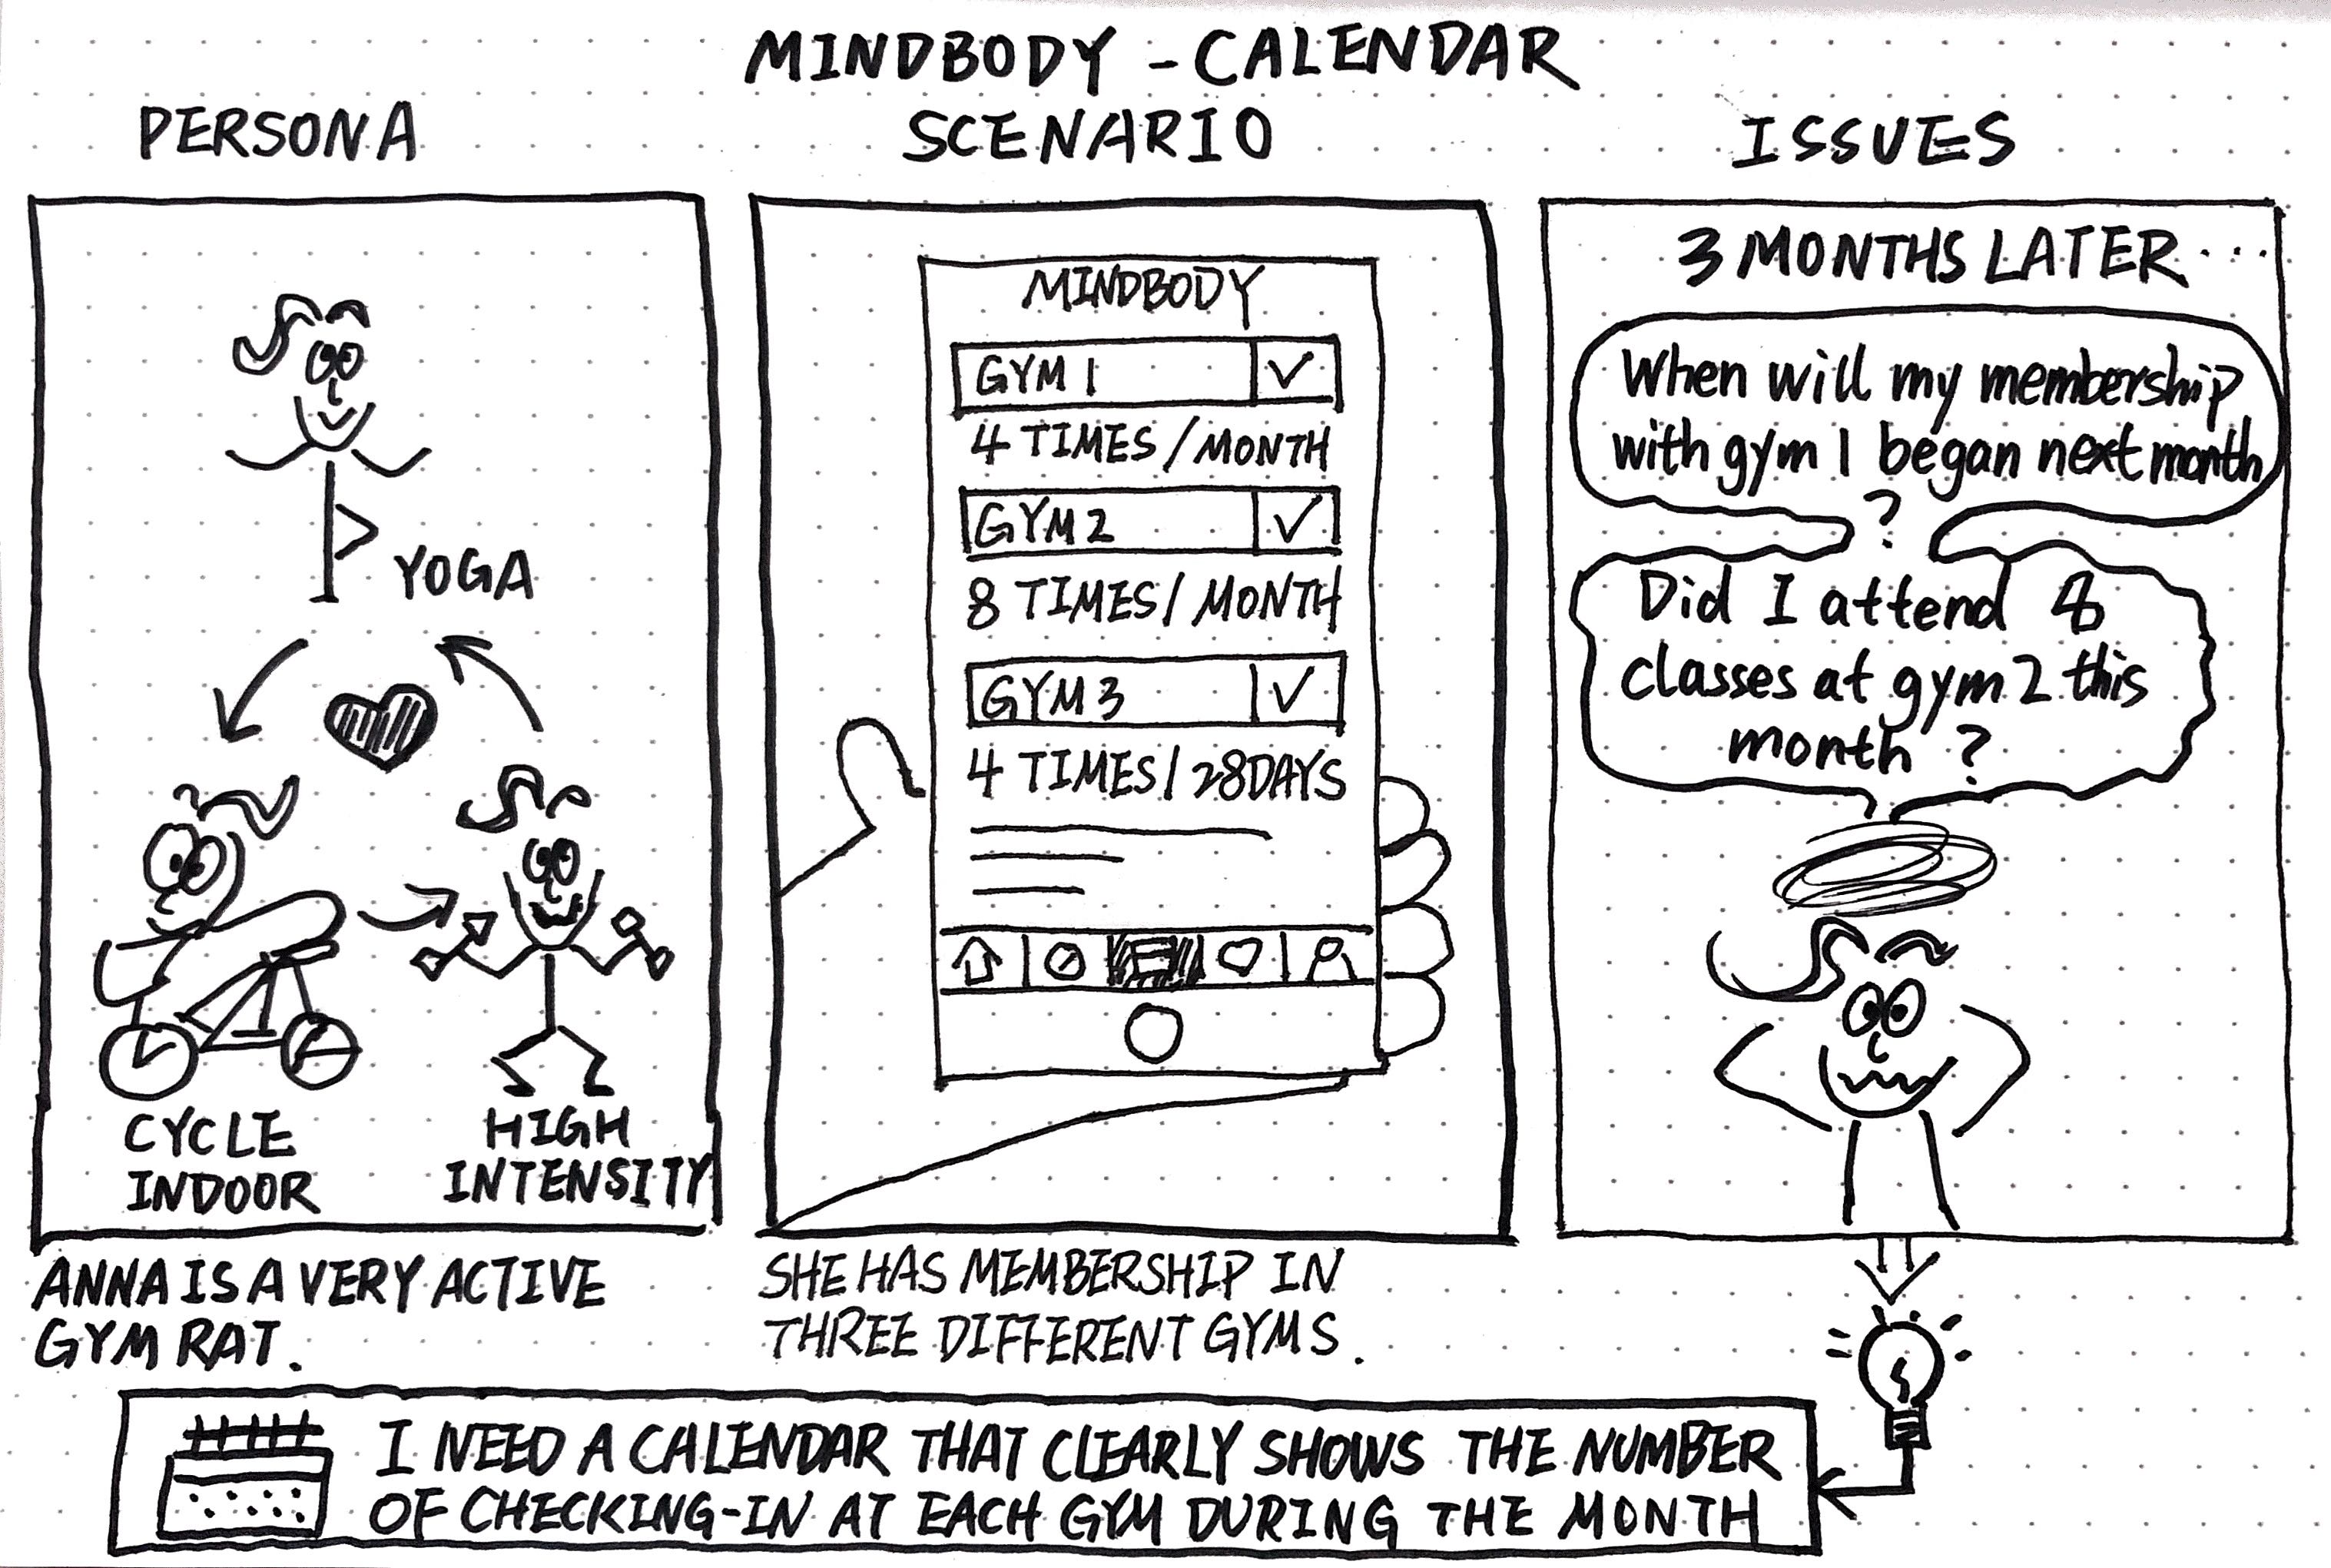 MINDBODY - CALENDAR
PERSONA
SCENARIO
ISSUES
YOGA
CYCLE
INDOOR
HIGH
INTENSITY
ANNA IS A VERY ACTIVE
GYM RAT.
MINDBODY
GYM 1
4 TIMES / MONTH
GYM 2
8 TIMES / MONTH
GYM 3
4 TIMES / 28DAYS
SHE HAS MEMBERSHIP IN
THREE DIFFERENT GYMS.
3 MONTHS LATER...
When will my membership
with gym 1 began next month
?
Did I attend 8
classes at gym 2 this
month ?
I NEED A CALENDAR THAT CLEARLY SHOWS THE NUMBER
OF CHECKING-IN AT EACH GYM DURING THE MONTH